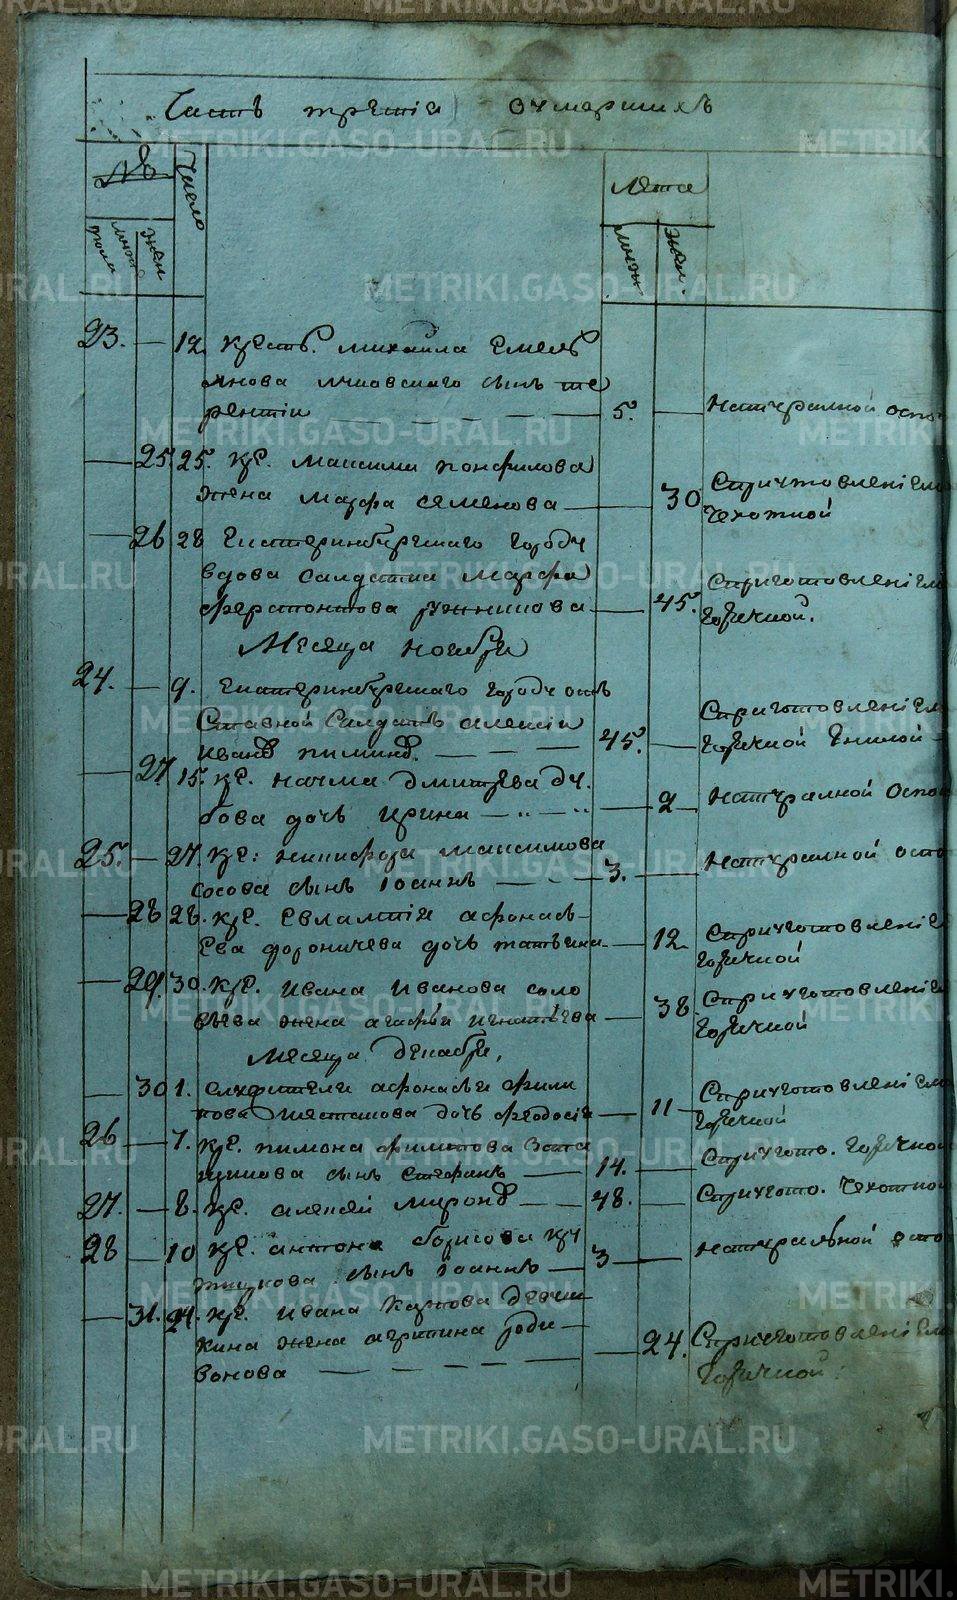 Часть третiя о умершихъ
№
Число
Лета
мужеска пола
жен
мужес
женс.
23. — 12 крест. михайла Емель
янова сынъ те
рентiи — 5. — Натуралной оспо
— 25. 25. кр. максима понфилова
жена марфа семенова — 30 С приготовленiем
чехотной
— 26 28 Екатеринбурскаго городу
вдова салдатка марфа
ферапонтова — 45. С приготовленiем
горячкой.
Месяца ноября
24. — 9. Екатеринбурскаго городу от
ставной Салдатъ алексiй
Иванов пиминов. — 45. — С приготовленiем
горячкой
— 27 15. кр. наума дмитрева ду
бова дочь ирина — 2 Натуралной оспо
25. — 27. кр: никифора максимова
сосова сынъ Iоаннъ — 3. — Натуралной оспо
— 28 28. кр. Евлампiя афонась
Ева дороничева дочь татьяна — 12 С приготовленiе
горячкой
— 29. 30. кр. Ивана Иванова соло
вьева жена агафья игнатьева — 38 С приготовленiе
горячкой
месяца декабря,
— 30 1. афонасья фили
пова шестакова дочь феодосiя — 11 С приготовленiем
горячкой
26 — 7. кр. пимона филипова
сынъ Стефанъ — 14. — С пригото. горячкой
27. — 8. кр. алексей миронов — 48. — С пригото. чехотной
28 — 10 кр. антона борисова ку
сынъ Iоаннъ — 3 — натуральной оспо
— 31. 24. кр. Ивана
кина жена агрипина роди
вонова — 24. С приготовленiем
горячкой.
METRIKI.GASO-URAL.RU